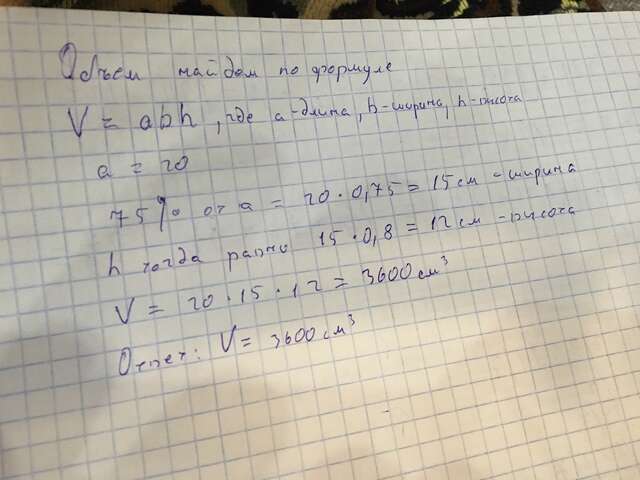 Объём найдем по формуле
V = abh, где a-длина, b-ширина, h-высота
a = 20
75% от a = 20 · 0,75 = 15 см - ширина
h тогда равны 15 · 0,8 = 12 см - высота
V = 20 · 15 · 12 = 3600 см³
Ответ: V = 3600 см³